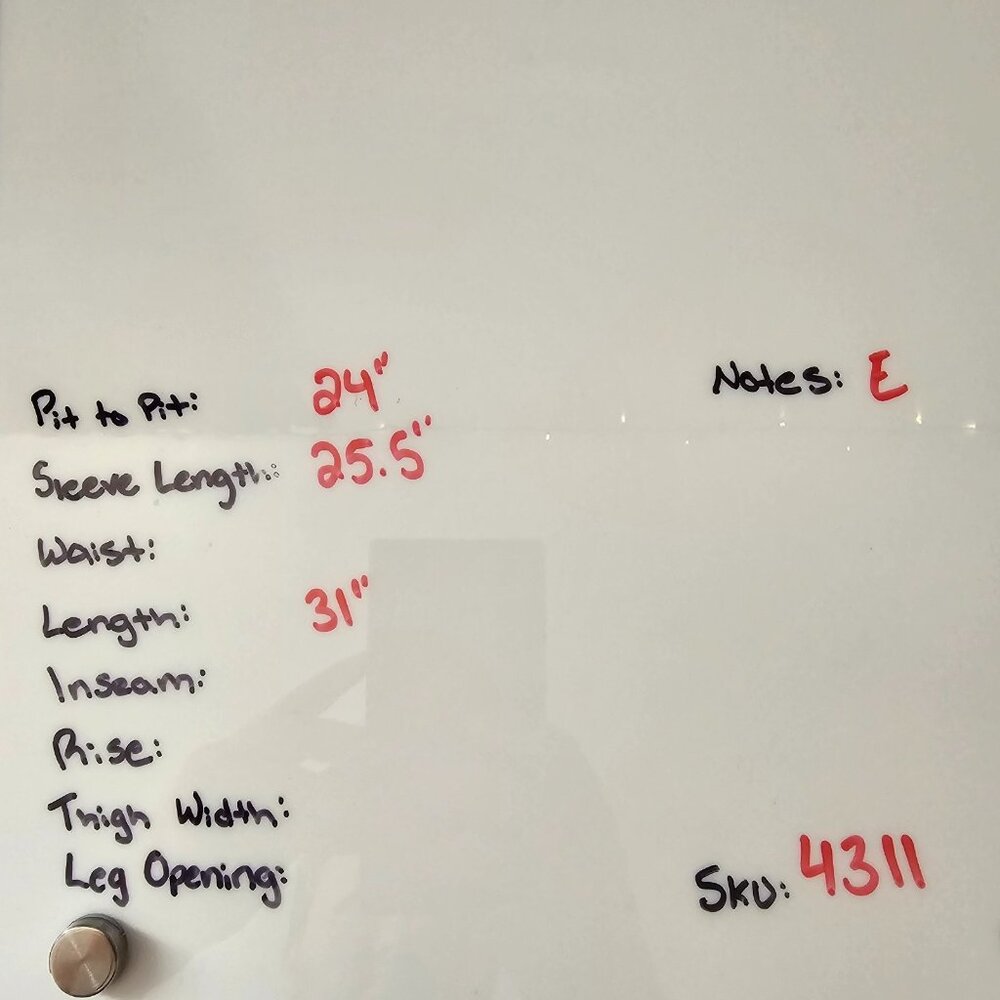 Pit to Pit: 24"
Sleeve Length: 25.5"
Waist:
Length: 31"
Inseam:
Rise:
Thigh Width:
Leg Opening:
Notes: E
SKU: 4311